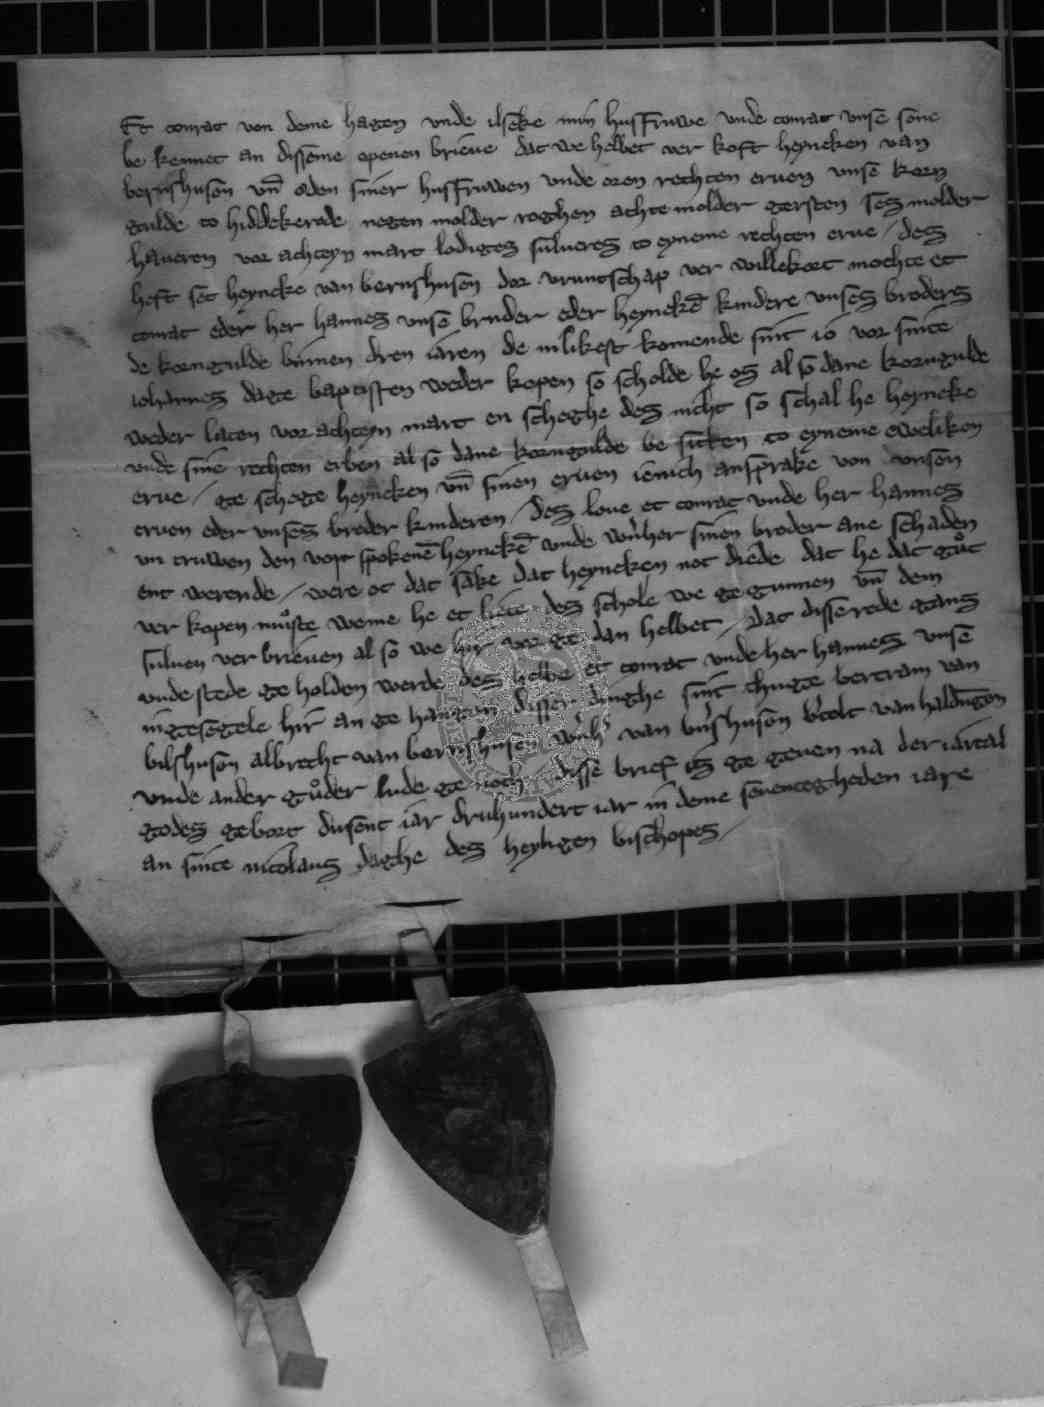 Et conrat von deme hagen vnde ilseke min husfruwe vnde conrat vnse sone
be kennet an disseme openen brieue dat we hebbet ver koft heyneken van
bernshusen vn̄ oden siner husfruwen vnde oren rechten eruen vnse korn
gulde to hiddekerode negen molder roghen achte molder gersten ses molder
haueren vor achteyn mart lodiges sulueres to eyneme rechten erue / des
heft set heyneke van bernshusen dor vruntschap ver willekort mochte et
conrat eder her hannes vnse bruder eder heynekē kindere vnses broders
de korngulde binnen dren iaren de nilikest komende sint io vor sinte
iohannes dage baptisten weder kopen so scholde he os al so dane korngulde
weder laten vor achteyn mart en scheghe des nicht so schal he heyneke
vnde sine rechten erben al so dane korngulde be sitten to eyneme eweliken
erue / ge schege heyneken vn̄ sinen eruen ienich ansprake von vnsen
eruen eder vnses broder kinderen / des loue et conrat vnde her hannes
vn truwen den vor spokenē heynekē vnde wūher sinen broder ane schaden
ent werende / were oc dat sake dat heyneken not diede dat he dat gůt
ver kopen muͦste weme he et liete des schole we ge gunnen vn̄ dem
suluen ver brieuen al so we hir vor ge dan hebbet / dat disse rede gans
vnde stede ge holden werde des hebbe et conrat vnde her hannes vnse
ingesegele hir an ge hangen disser dinghe sint thuge bertram van
bilshusen albrecht van bernshusen wūhʼ van bn̄shusen bʼtolt van haldungen
vnde ander gůder lude ge noch disse brief is ge geuen na der iartal
godes gebort dusent iar druhundert iar in deme seuentegheden iare
an sinte nicolaus daghe des heyligen bischopes /